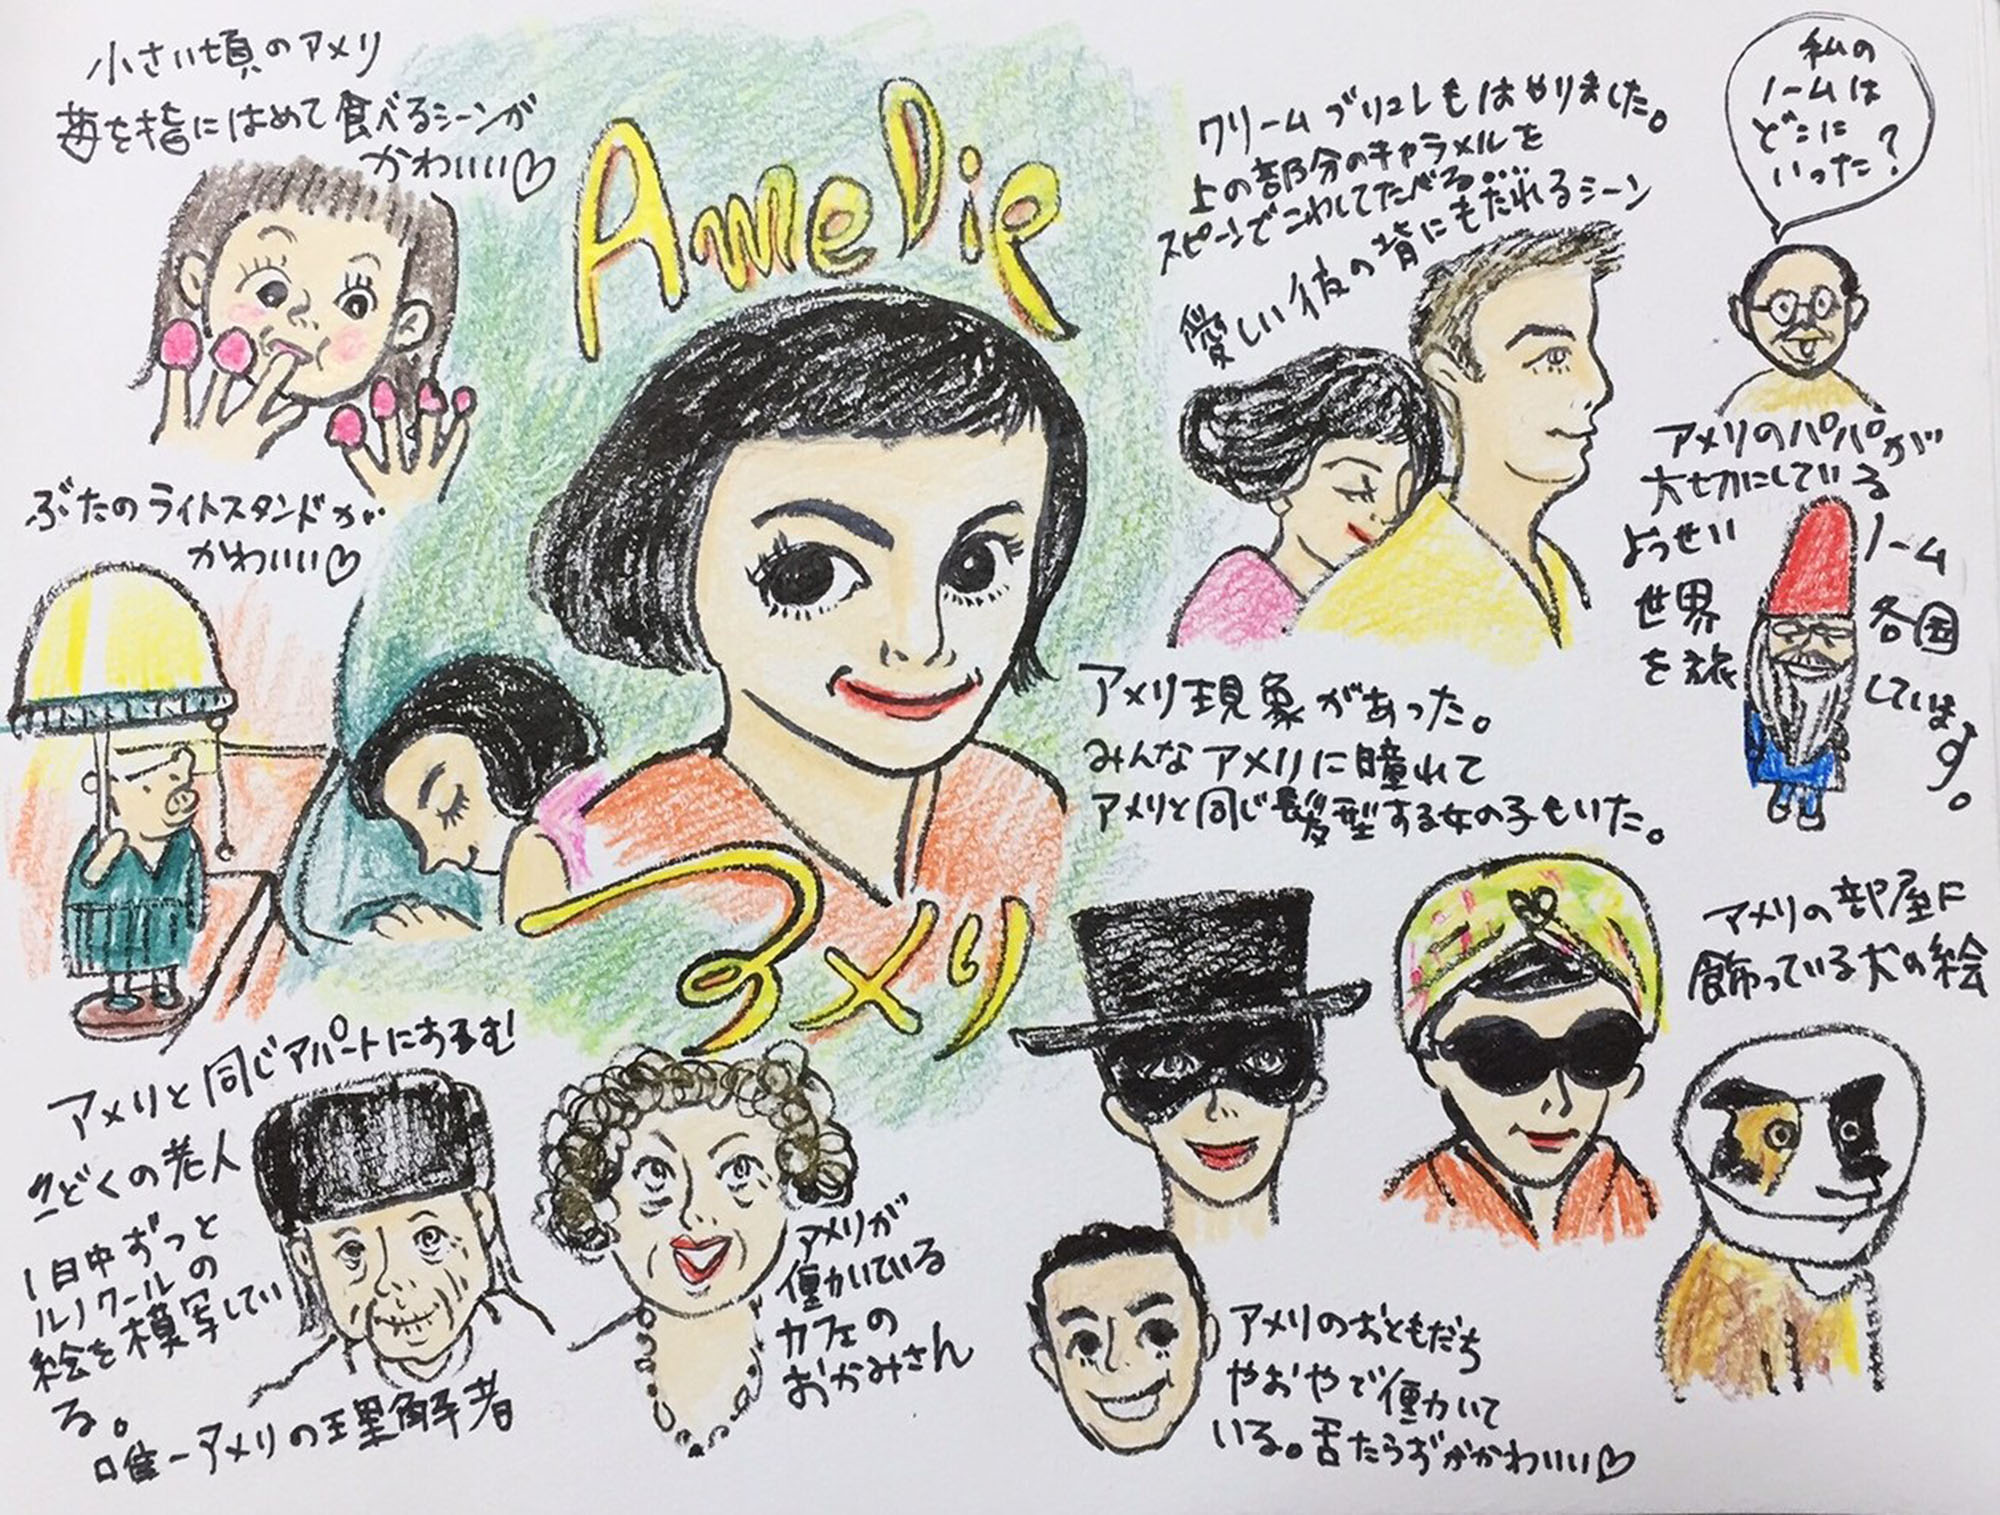 小さい頃のアメリ
苺を指にはめて食べるシーンが
かわいい♡
AmeDie
クリームブリュレもはやりました。
上の部分のキャラメルを
スピーンでこわしてたべる...
愛しい彼の背にもたれるシーン
私の
ノームは
どこに
いった?
アメリのパパが
大切にしている
ようせいノーム
世界各国
を旅しています。
ぶたのライトスタンドが
かわいい♡
アメリ現象があった。
みんなアメリに瞳れて
アメリと同じ髪型する女の子もいた。
アメリ
アメリの部屋に
飾っている犬の絵
アメリと同じアパートにおすむ!
こどくの老人
1日中ずっと
ルノワールの
絵を模写してい
る。
唯一アメリの理解者
アメリが
働いている
カフェの
おかみさん
アメリのおともだち
やおやで働いて
いる。舌たらずがかわいい♡